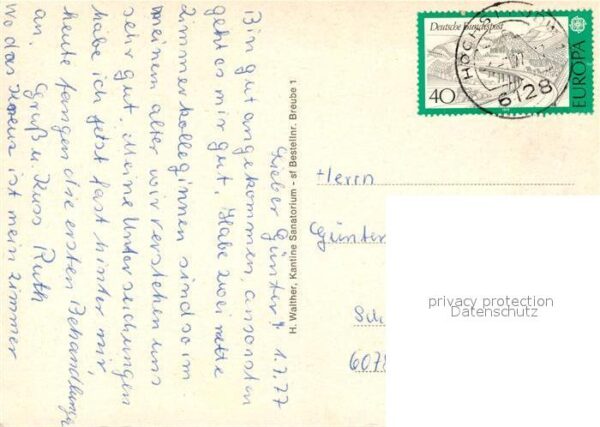 Lieber Günter! 1.7.77
Bin gut angekommen, ansonsten
geht es mir gut. Habe zwei nette
Zimmerkolleginnen sind so im
meinem alter wir verstehen uns
sehr gut. Meine Unterseichungen
habe ich jetzt fast hinter mir,
heute fangen die ersten Behandlungen
an. Gruß u Kuss Ruth
Wo das Kreuz ist mein Zimmer
H. Walther, Kantine Sanatorium - sf Bestellnr. Breube 1
Deutsche Bundespost
40
EUROPA
HÖCHST
6128
Herrn
Günter
Sch
6078
privacy protection
Datenschutz